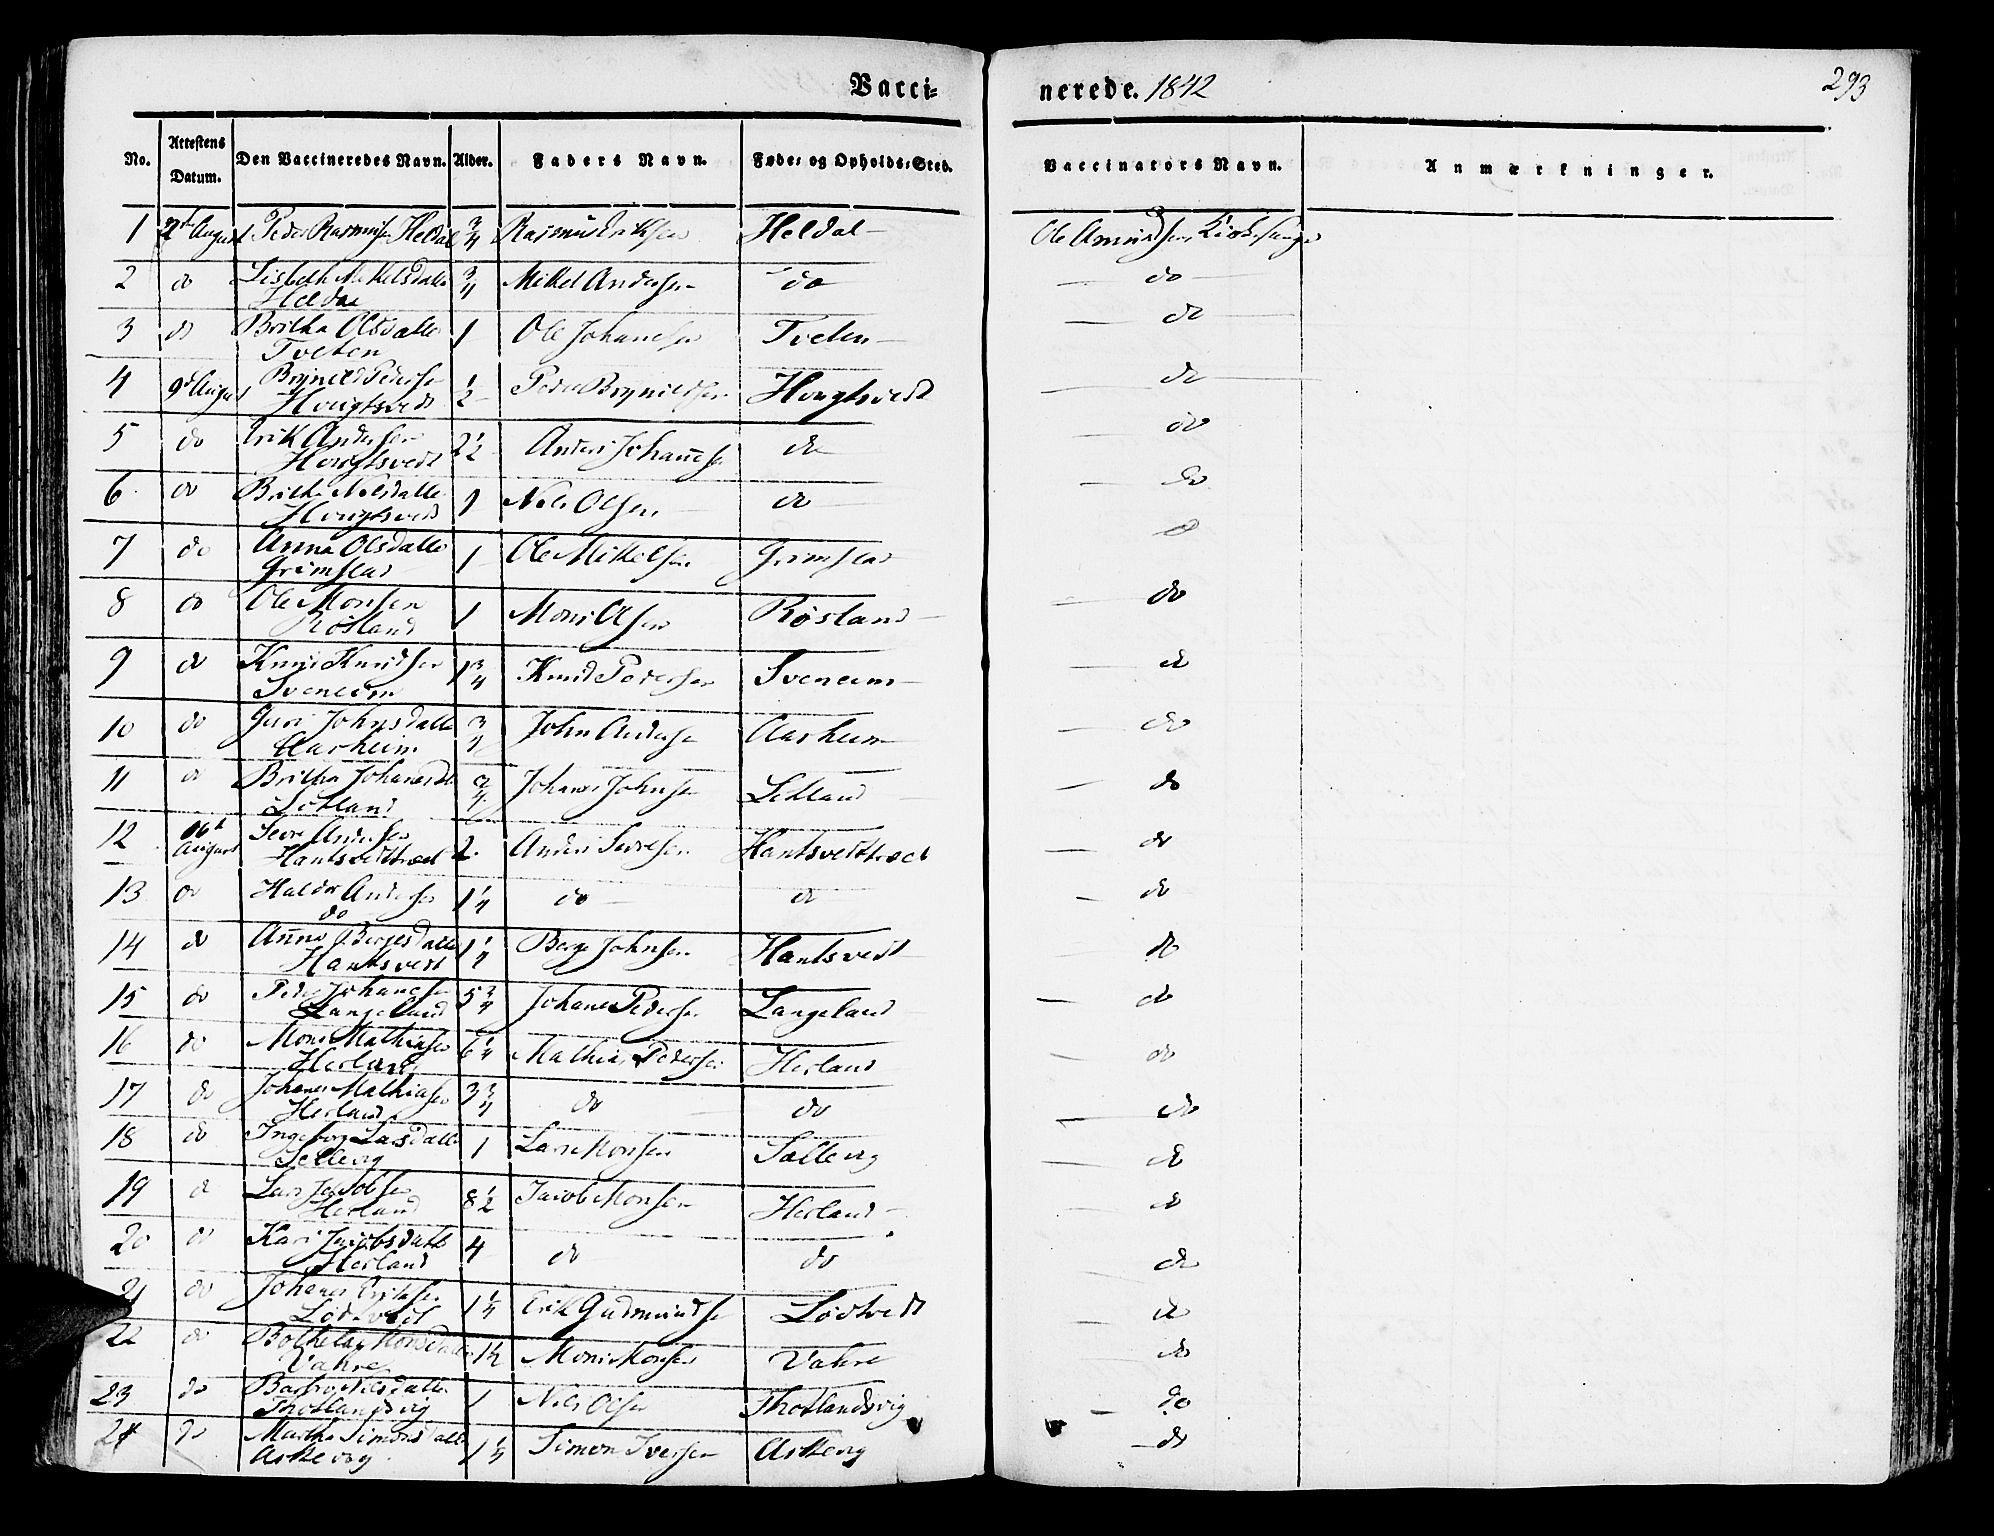 Vacci-
nerede. 1842
293
No.
Attestens Datum.
Den Vaccineredes Navn.
Alder.
Faders Navn.
Føde- og Opholds-Sted.
Vaccinators Navn.
Anmærkninger.
1 2den August Peder Rasmusen Heldal 3/4 Rasmus Eriksen Heldal Ole Amundsen Kirkesanger
2 do Lisbeth Mikelsdatter Heldal 3/4 Mikel Andersen do do
3 do Britha Olsdatter Tveten 1 Ole Johanesen Tveten do
4 9d August Brynild Pedersen Hougtsvedt 1/2 Peder Brynildsen Hougtsvedt do
5 do Erik Andersen Hougtsvedt 2 1/2 Anders Johannesen do do
6 do Britha Nilsdatter Hougtsvedt 1 Nils Olsen do do
7 do Anna Olsdatter Grimstad 1 Ole Mikelsen Grimstad do
8 do Ole Monsen Røsland 1 Mons Olsen Røsland do
9 do Knud Knudsen Sveneim 1 3/4 Knud Pedersen Sveneim do
10 do Guri Johnsdatter Aarheim 3/4 John Andersen Aarheim do
11 do Britha Johanesdtr Lotland 3/4 Johanes Johnsen Lotland do
12 16d August Sevre Andersen Hantsvedttræet 2 Anders Sevresen Hantsvedttræet do
13 do Haldor Andersen do 1 1/4 do do do
14 do Anna Bergesdatter Hantsvedt 1 1/4 Berge Johnsen Hantsvedt do
15 do Peder Johanesen Langeland 5 3/4 Johanes Pedersen Langeland do
16 do Mons Mathiasen Herland 6 1/4 Mathias Pedersen Herland do
17 do Johanes Mathiasen Herland 3 3/4 do do do
18 do Ingeborg Larsdatter Sellevig 1 Lars Monsen Sallevig do
19 do Lars Jacobsen Herland 8 1/2 Jacob Monsen Herland do
20 do Kari Jacobsdatter Herland 4 do do do
21 do Johanes Eriksen Lødtvedt 1 1/4 Erik Gudmundsen Lødtvedt do
22 do Botheta Monsdatter Vahre 1 1/2 Mons Monsen Vahre do
23 do Nilsdatter Thotlandsvig 1 Nils Olsen Thotlandsvig do
24 do Martha Simonsdatter Askevig 1 1/4 Simon Iversen Askevig do